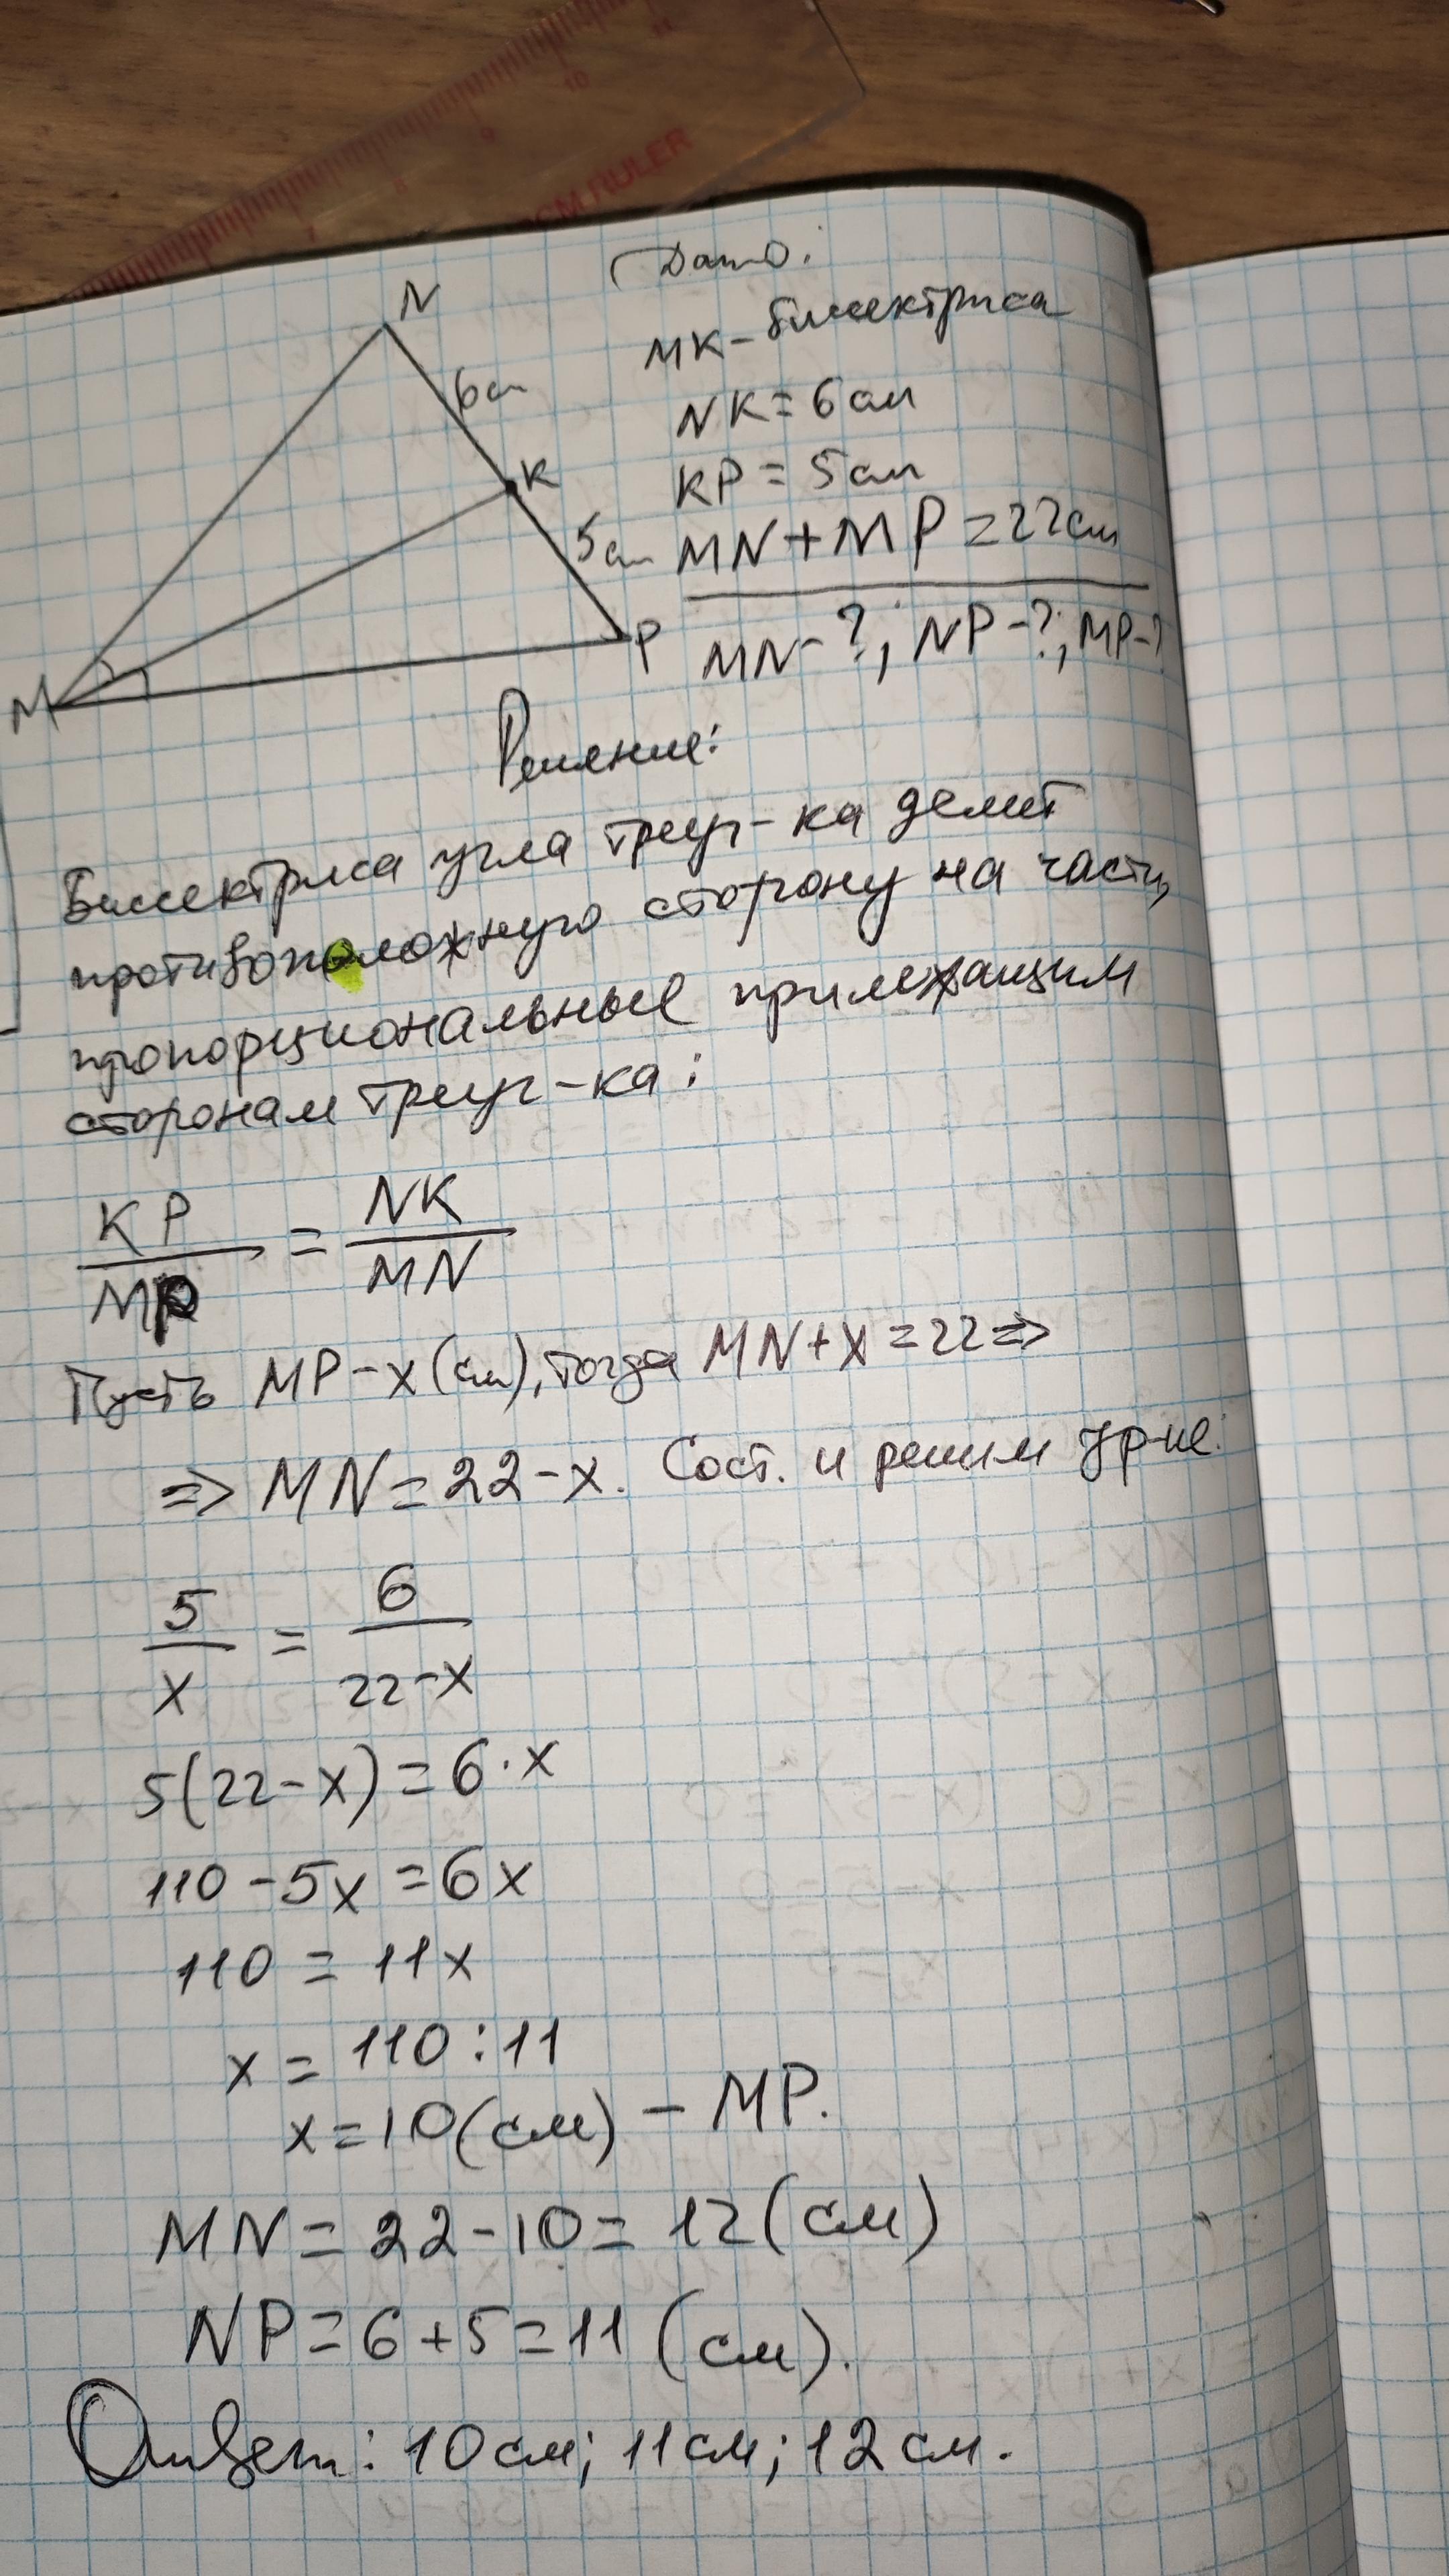 CM RULER
Дано:
N
MK - биссектриса
6см
NK = 6см
K
KP = 5см
5см
MN + MP = 22см
P
MN - ?; NP - ?; MP - ?
M
Решение:
Биссектриса угла треуг-ка делит
противоположную сторону на части,
пропорциональные прилежащим
сторонам треуг-ка:
KP/MP = NK/MN
Пусть MP - x (см), тогда MN + x = 22 =>
=> MN = 22 - x. Сост. и решим ур-ие:
5/x = 6/22-x
5(22 - x) = 6 · x
110 - 5x = 6x
110 = 11x
x = 110 : 11
x = 10 (см) - MP.
MN = 22 - 10 = 12 (см)
NP = 6 + 5 = 11 (см).
Ответ: 10 см; 11 см; 12 см.